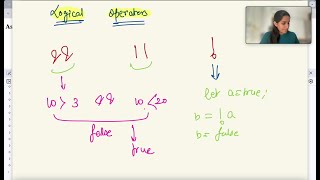 Logical Operators
&& || !
10 > 3 && 10 < 20
false
true
let a = true;
b = !a
b = false